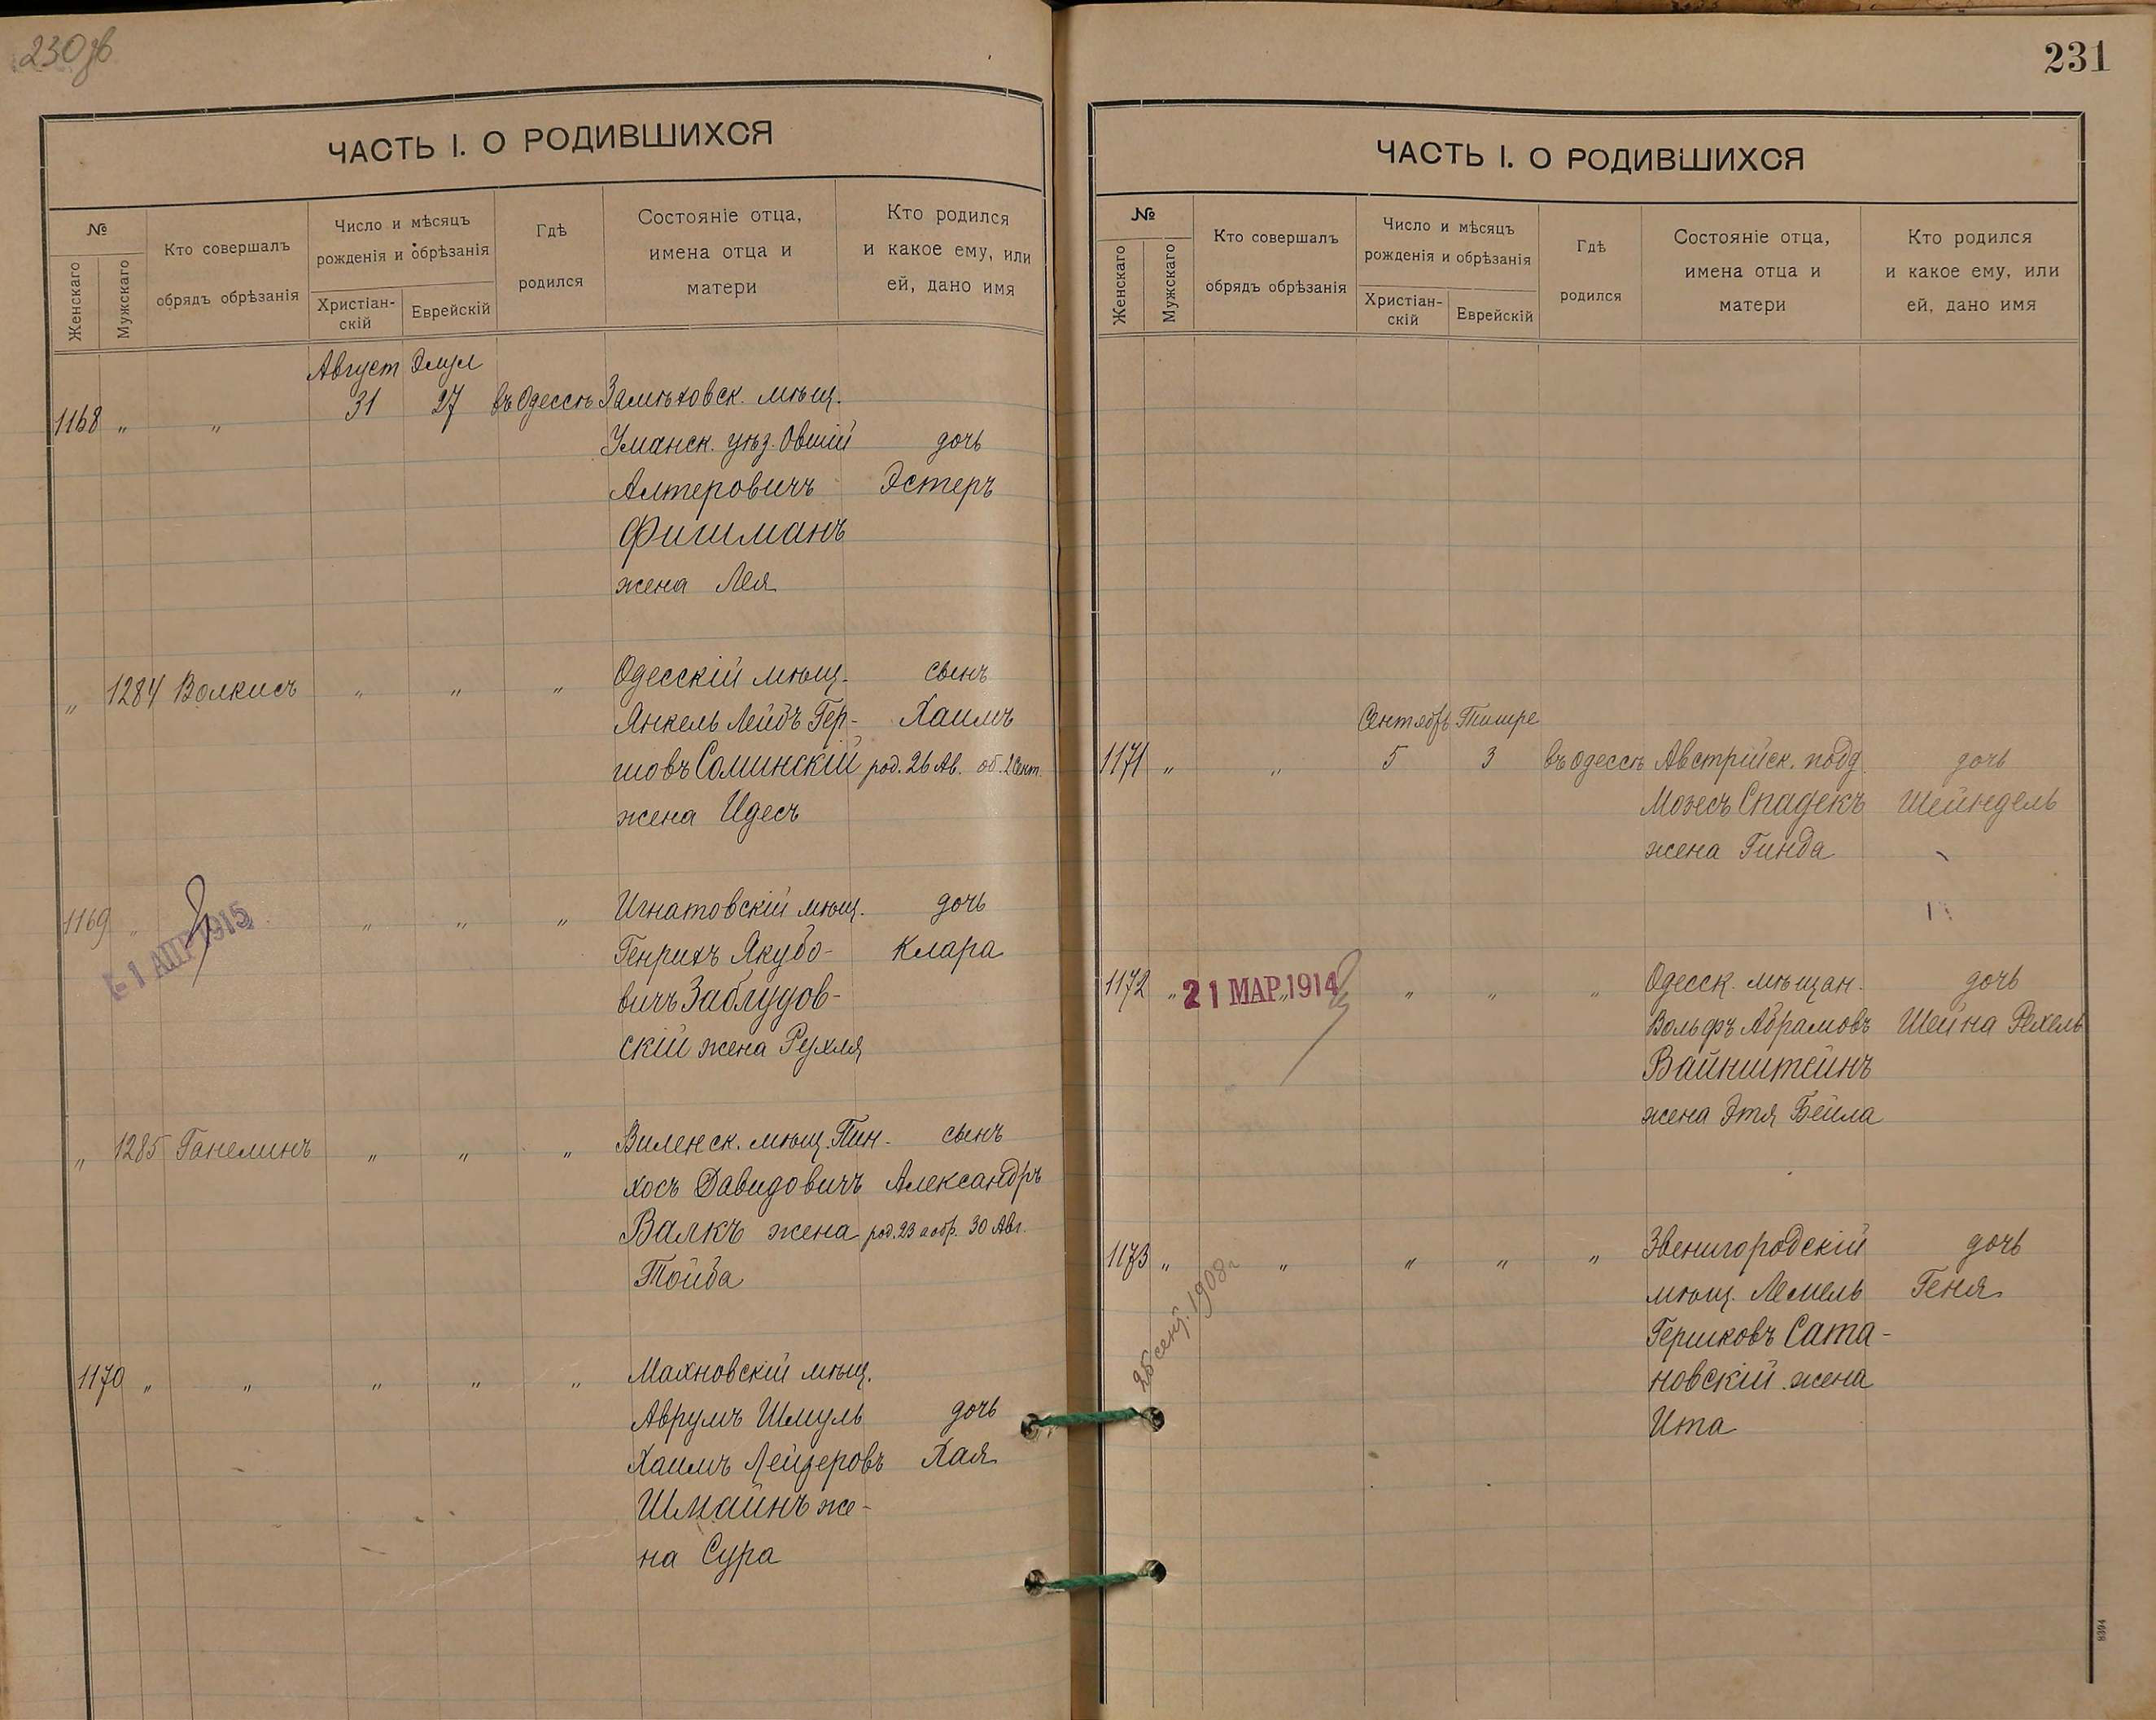 230об
ЧАСТЬ I. О РОДИВШИХСЯ
№
Женскаго
Мужскаго
Кто совершалъ
обрядъ обрѣзанія
Число и мѣсяцъ
рожденія и обрѣзанія
Христіан-
скій
Еврейскій
Гдѣ
родился
Состояніе отца,
имена отца и
матери
Кто родился
и какое ему, или
ей, дано имя
Август Элул
1168 " " 31 27 въ Одессѣ Замѣховск. мѣщ.
Уманск. уѣз. Овшій дочь
Алтеровичъ Эстеръ
Фишманъ
жена Лея
" 1284 Волкисъ " " " Одесскій мѣщ. сынъ
Янкель Лейбъ Гер- Хаимъ
шовъ Соминскій род. 26 Ав. об. 2 Сент.
жена Идесъ
1169 " " " " Игнатовскій мѣщ. дочь
- 1 АПР 1915
Генрихъ Якубо- Клара
вичъ Заблудов-
скій жена Рухля
" 1285 Ганелинъ " " " Виленск. мѣщ. Пин- сынъ
хосъ Давидовичъ Александръ
Валкъ жена род. 23 а обр. 30 Авг.
Тойба
1170 " " " " " Махновскій мѣщ.
Аврумъ Шмуль дочь
Хаимъ Лейзеровъ Хая
Шмайнъ же-
на Сура
231
ЧАСТЬ I. О РОДИВШИХСЯ
№
Женскаго
Мужскаго
Кто совершалъ
обрядъ обрѣзанія
Число и мѣсяцъ
рожденія и обрѣзанія
Христіан-
скій
Еврейскій
Гдѣ
родился
Состояніе отца,
имена отца и
матери
Кто родился
и какое ему, или
ей, дано имя
Сентябрь Тишре
1171 " " 5 3 въ Одессѣ Австрійск. подд. дочь
Мозесъ Спадекъ Шейндель
жена Гинда
1172 " 21 МАР. 1914 " " " Одесск. мѣщан. дочь
Вольфъ Абрамовъ Шейна Рехель
Вайнштейнъ
жена Этя Бейла
1173 " " " " " Звенигородскій дочь
25 сент. 1908 г.
мѣщ. Лемель Геня
Гершковъ Сата-
новскій жена
Ита
8394